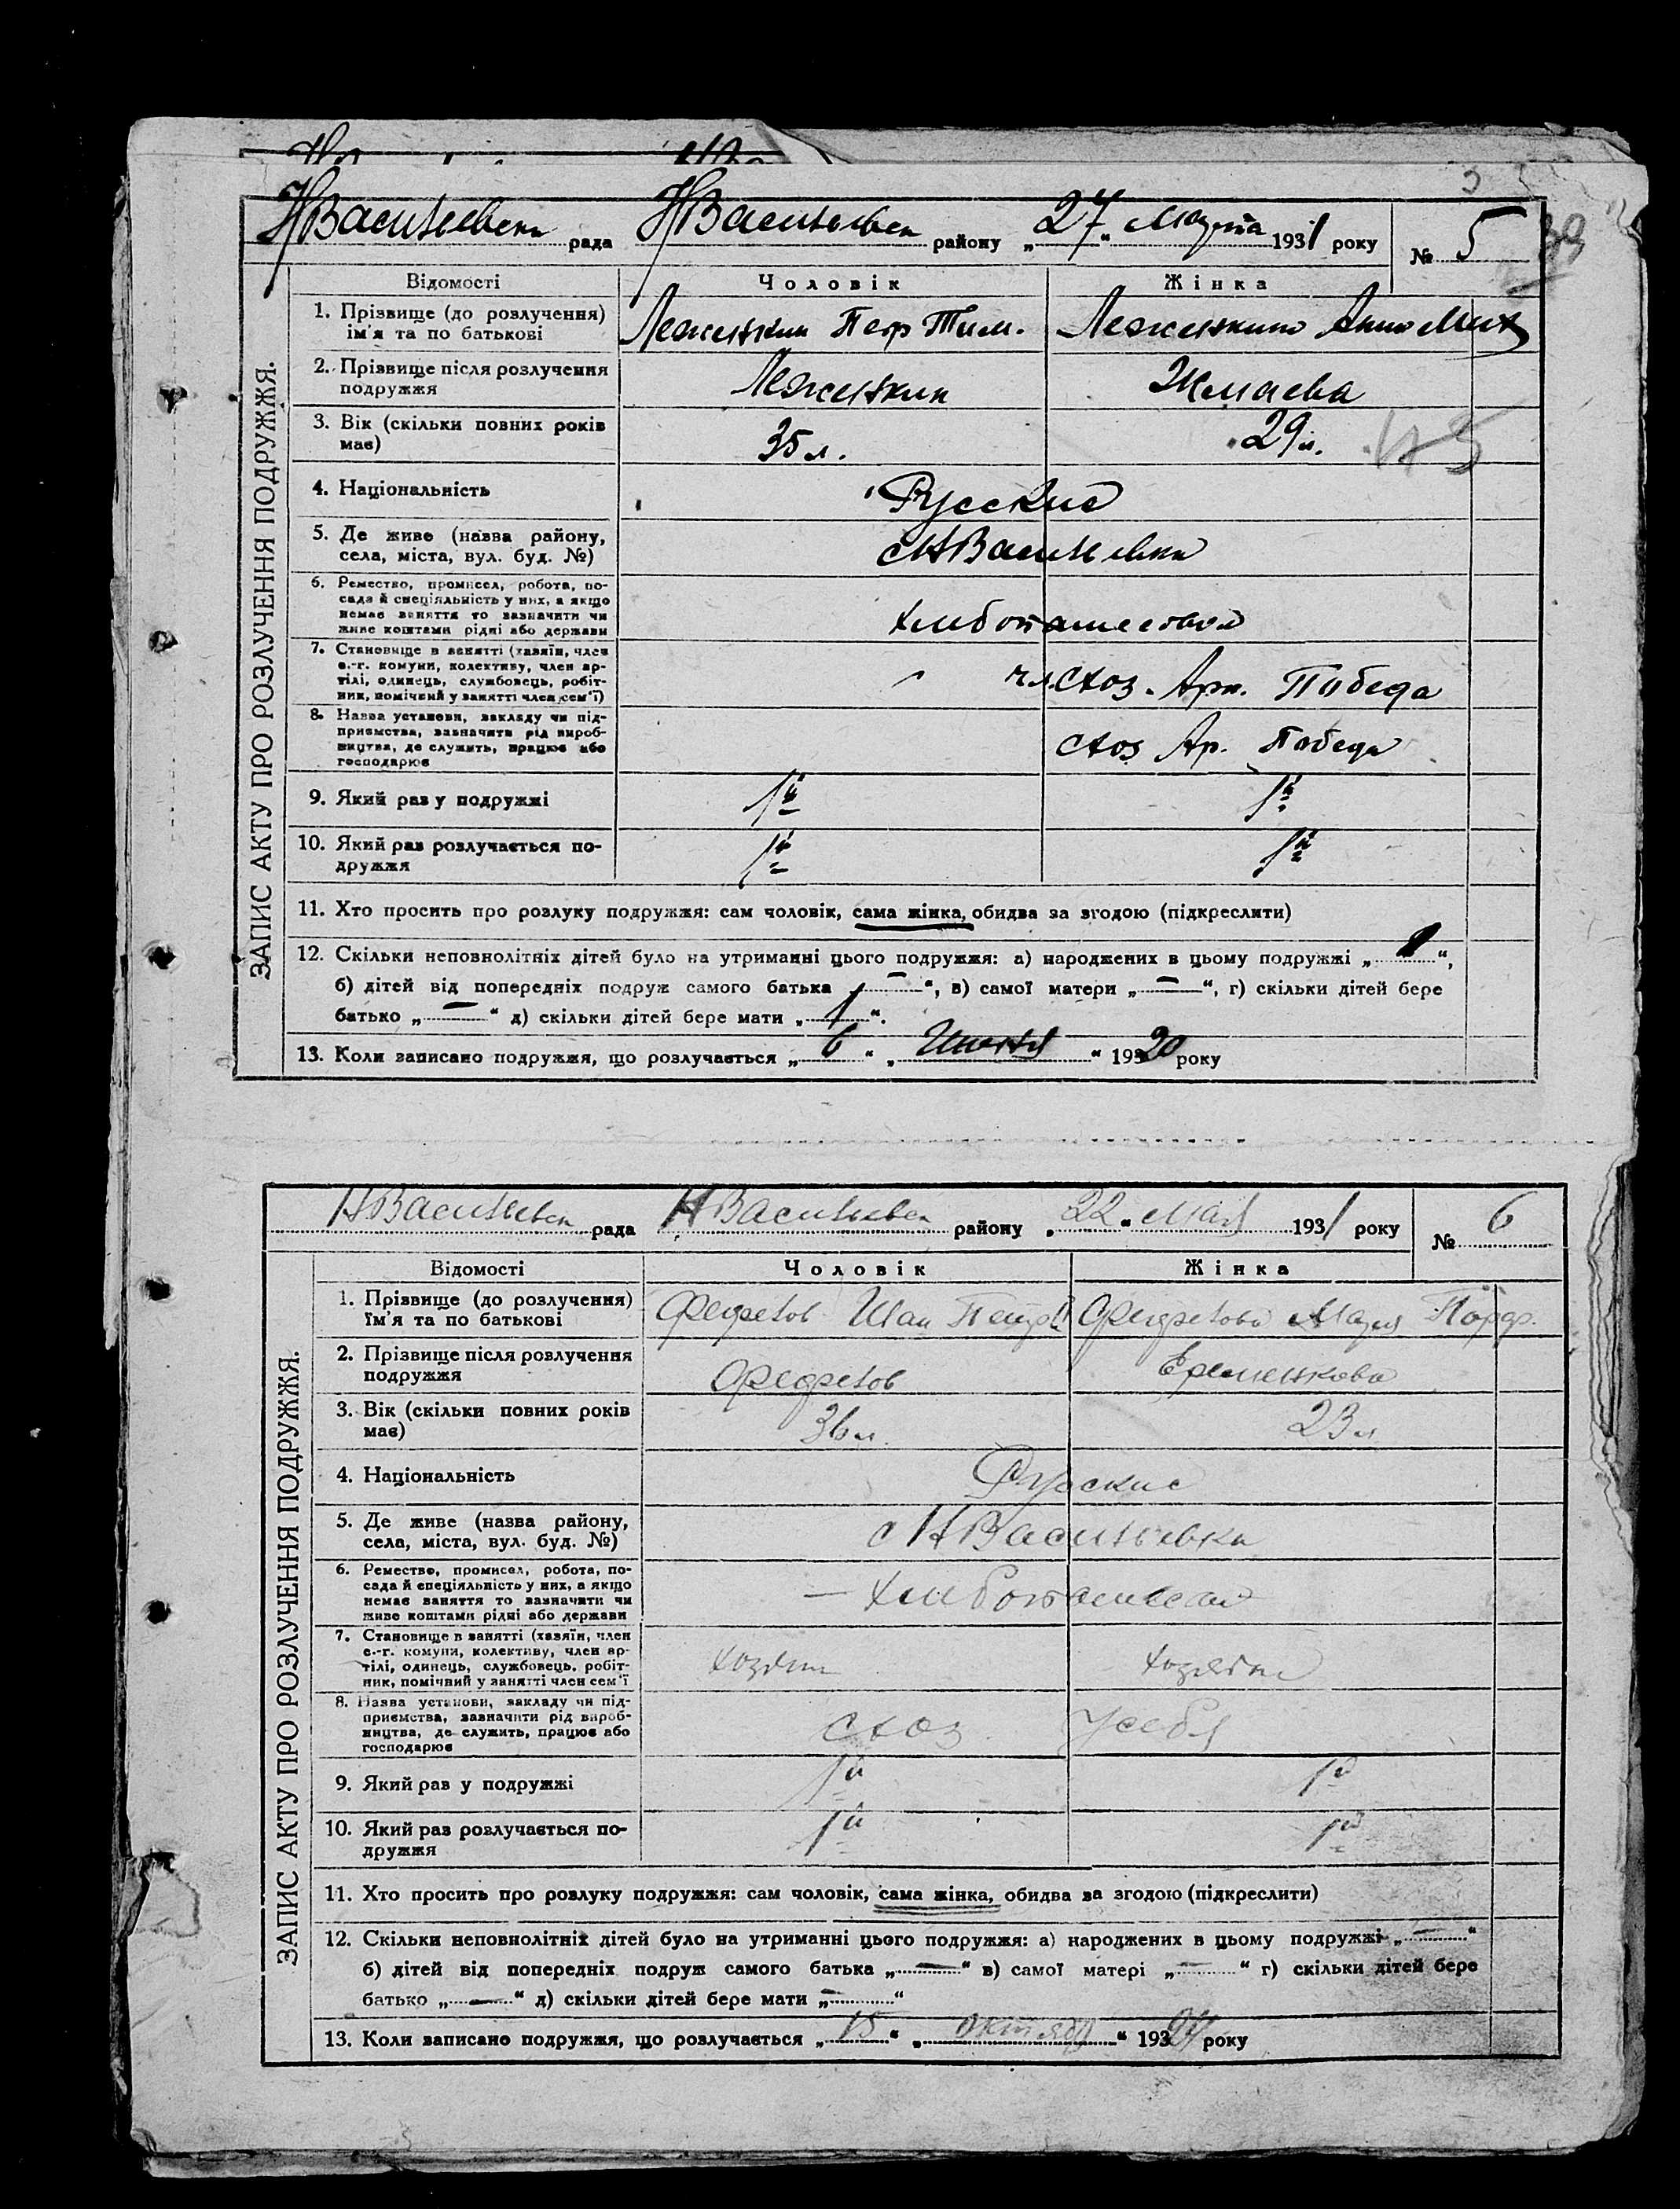 НВасильевск рада НВасильевск району „27“ Марта 1931 року № 5
39
ЗАПИС АКТУ ПРО РОЗЛУЧЕННЯ ПОДРУЖЖЯ.
Відомості Чоловік Жінка
1. Прізвище (до розлучення) ім'я та по батькові Лежнин Петр Тим.
2. Прізвище після розлучення подружжя Жмаева
3. Вік (скільки повних років має) 35 л. 29 л.
4. Національність Русские
5. Де живе (назва району, села, міста, вул. буд. №) с НВасильевка
6. Ремество, промисел, робота, по-
сада й спеціяльність у них, а якщо
немає заняття то зазначити чи
живе коштами рідні або держави
7. Становище в занятті (хазяїн, член
с.-г. комуни, колективу, член ар-
тілі, одинець, службовець, робіт-
ник, помічний у занятті член сем'ї) чл. СХОЗ. Арт. Победа
8. Назва установи, закладу чи під-
приємства, зазначити рід вироб-
ництва, де служить, працює або
господарює СХОЗ Ар. Победа
9. Який раз у подружжі 1й 1й
10. Який раз розлучається по-
дружжя 1й 1й
11. Хто просить про розлуку подружжя: сам чоловік, сама жінка, обидва за згодою (підкреслити)
12. Скільки неповнолітніх дітей було на утриманні цього подружжя: а) народжених в цьому подружжі „1“,
б) дітей від попередніх подруж самого батька „—“, в) самої матери „—“, г) скільки дітей бере
батько „—“ д) скільки дітей бере мати „1“.
13. Коли записано подружжя, що розлучається „6“ „“ 1920 року
НВасильевск рада НВасильевск району „22“ Мая 1931 року № 6
ЗАПИС АКТУ ПРО РОЗЛУЧЕННЯ ПОДРУЖЖЯ.
Відомості Чоловік Жінка
1. Прізвище (до розлучення)
ім'я та по батькові
2. Прізвище після розлучення
подружжя Еременкова
3. Вік (скільки повних років
має) 36 л. 23 л
4. Національність Русские
5. Де живе (назва району,
села, міста, вул. буд. №) с НВасильевка
6. Ремество, промисел, робота, по-
сада й спеціяльність у них, а якщо
немає заняття то зазначити чи
живе коштами рідні або держави
7. Становище в занятті (хазяїн, член
с.-г. комуни, колективу, член ар-
тілі, одинець, службовець, робіт-
ник, помічний у занятті член сем'ї хозяин хозяйка
8. Назва установи, закладу чи під-
приємства, зазначити рід вироб-
ництва, де служить, працює або
господарює СХОЗ у себя
9. Який раз у подружжі 1й 1й
10. Який раз розлучається по-
дружжя 1й 1й
11. Хто просить про розлуку подружжя: сам чоловік, сама жінка, обидва за згодою (підкреслити)
12. Скільки неповнолітніх дітей було на утриманні цього подружжя: а) народжених в цьому подружжі „—“
б) дітей від попередніх подруж самого батька „—“ в) самої матері „—“ г) скільки дітей бере
батько „—“ д) скільки дітей бере мати „—“
13. Коли записано подружжя, що розлучається „15“ „октября“ 1927 року